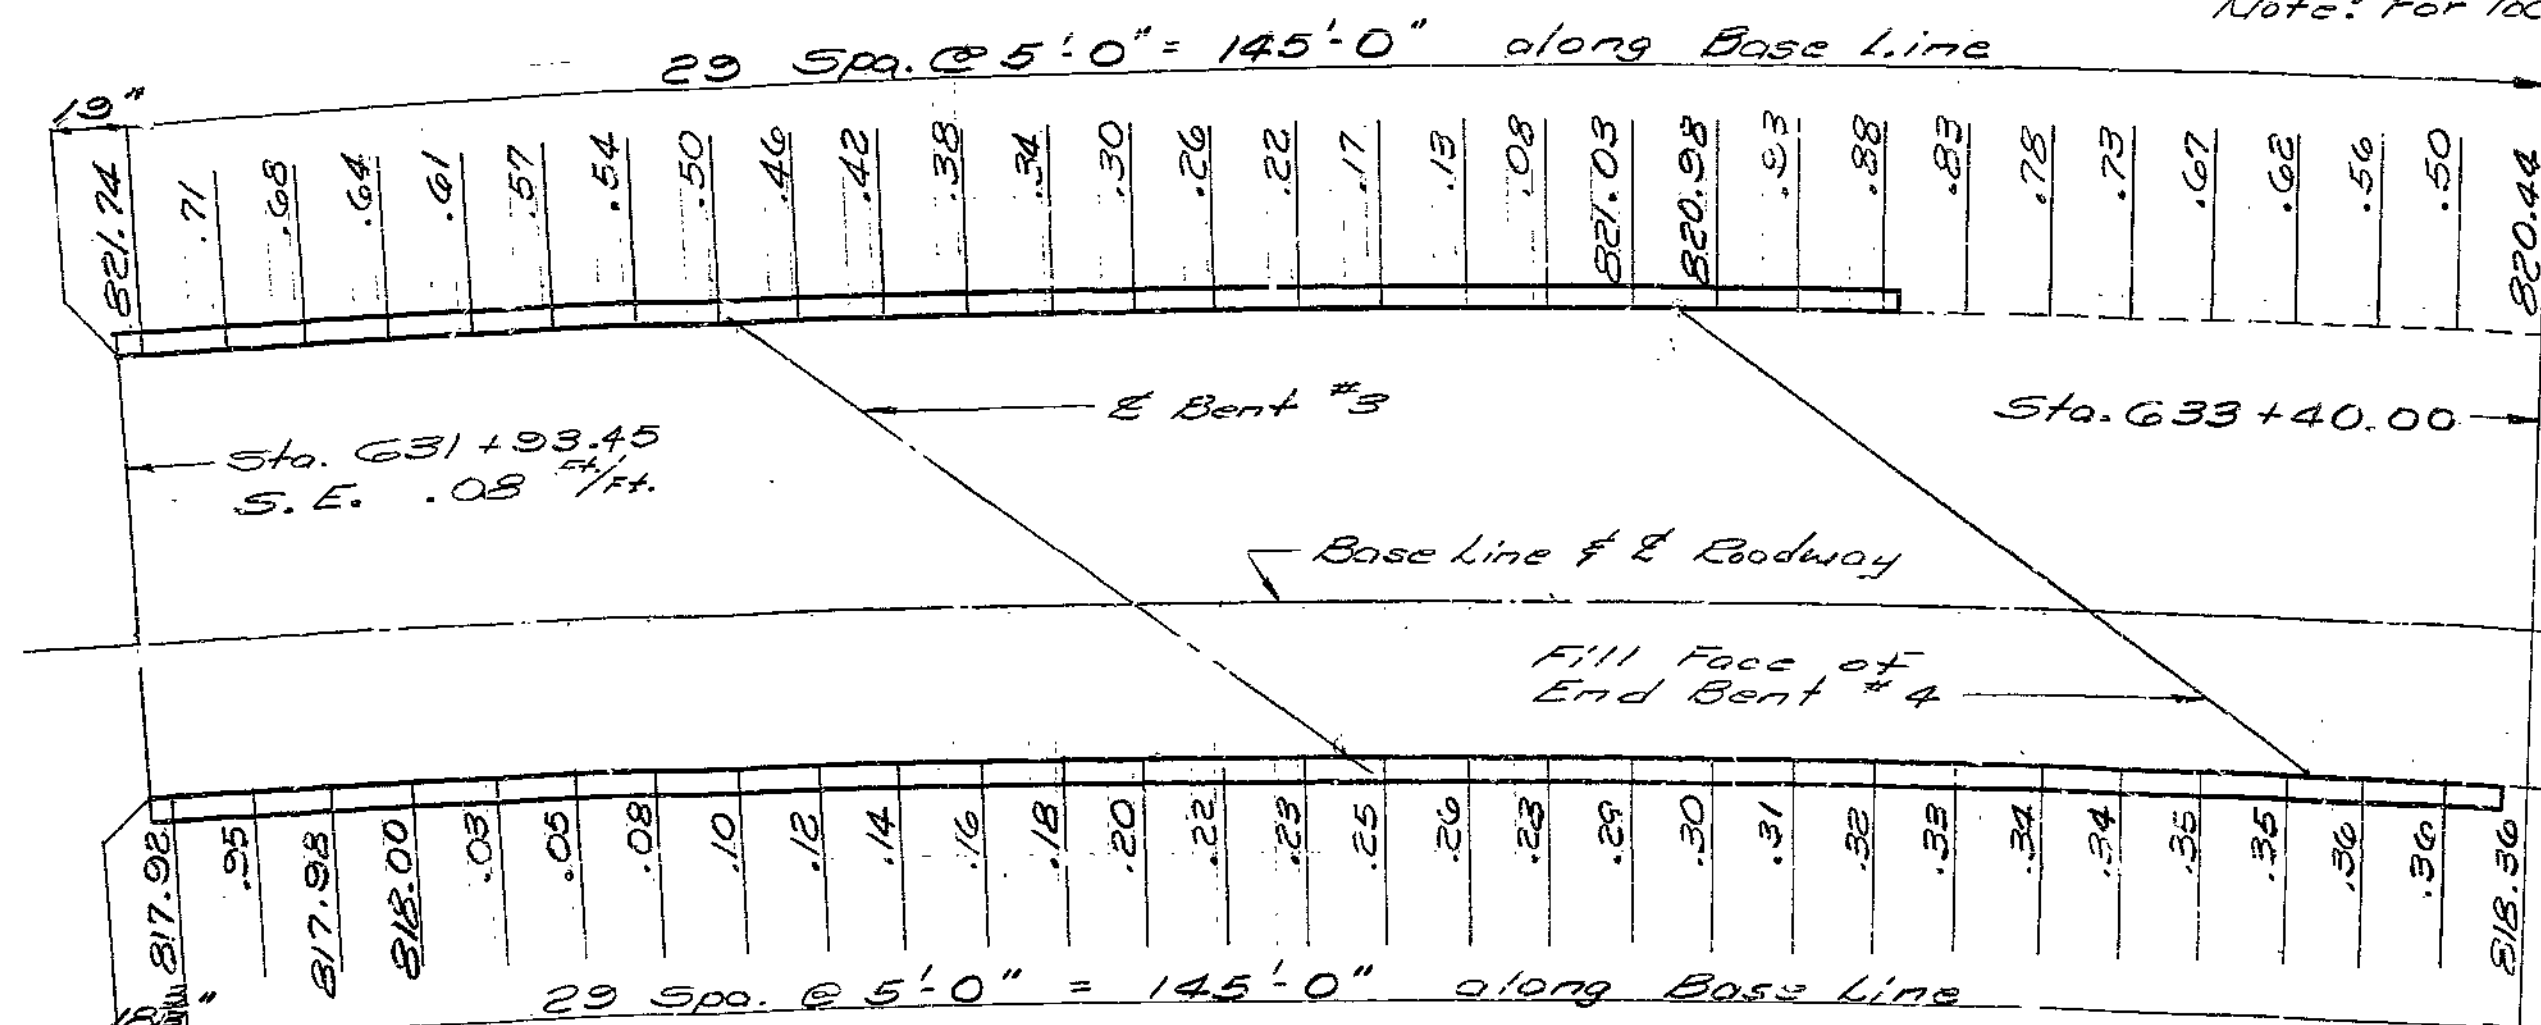 Note: For
29 Spa. @ 5'-0" = 145'-0" along Base Line
19"
821.74 .71 .68 .64 .61 .57 .54 .50 .46 .42 .38 .34 .30 .26 .22 .17 .13 .08 821.03 820.98 .93 .88 .83 .78 .73 .67 .62 .56 .50 820.44
℄ Bent #3
Sta. 633+40.00
Sta. 631+93.45
S.E. .08 Ft./Ft.
Base Line & ℄ Roadway
Fill Face of
End Bent #4
817.92 .95 817.98 818.00 .03 .05 .08 .10 .12 .14 .16 .18 .20 .22 .23 .25 .26 .28 .29 .30 .31 .32 .33 .34 .34 .35 .35 .36 .36 818.36
29 Spa. @ 5'-0" = 145'-0" along Base Line